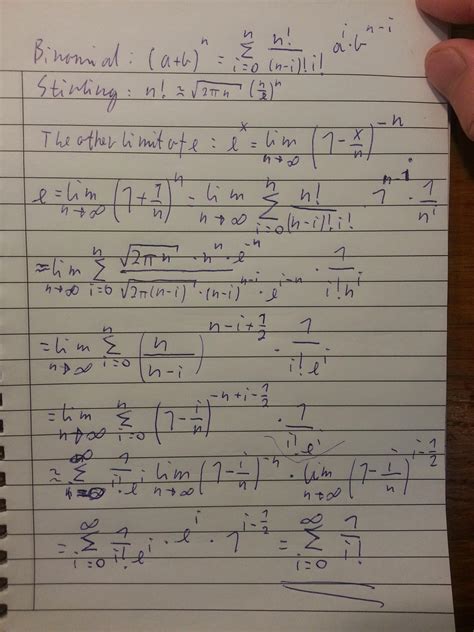 Binomial: (a+b)^n = \sum_{i=0}^{n} \frac{n!}{(n-i)!i!} a^i \cdot b^{n-i}
Stirling: n! \approx \sqrt{2\pi n} (\frac{n}{e})^n
The other limit of e: e^x = \lim_{n\to\infty} (1-\frac{x}{n})^{-n}
e = \lim_{n\to\infty} (1+\frac{1}{n})^n = \lim_{n\to\infty} \sum_{i=0}^{n} \frac{n!}{(n-i)!i!} \cdot 1^{n-i} \cdot \frac{1}{n^i}
\approx \lim_{n\to\infty} \sum_{i=0}^{n} \frac{\sqrt{2\pi n} \cdot n^n \cdot e^{-n}}{\sqrt{2\pi(n-i)} \cdot (n-i)^{n-i} \cdot e^{i-n}} \cdot \frac{1}{i!n^i}
= \lim_{n\to\infty} \sum_{i=0}^{n} (\frac{n}{n-i})^{n-i+\frac{1}{2}} \cdot \frac{1}{i!e^i}
= \lim_{n\to\infty} \sum_{i=0}^{n} (1-\frac{i}{n})^{-n+i-\frac{1}{2}} \cdot \frac{1}{i!e^i}
\approx \sum^{\infty} \frac{1}{i! \cdot e^i} \lim_{n\to\infty} (1-\frac{i}{n})^{-n} \cdot \lim_{n\to\infty} (1-\frac{i}{n})^{i-\frac{1}{2}}
= \sum_{i=0}^{\infty} \frac{1}{i! \cdot e^i} \cdot e^i \cdot 1^{i-\frac{1}{2}} = \sum_{i=0}^{\infty} \frac{1}{i!}